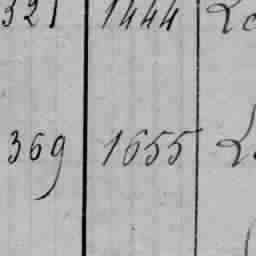 321 1444
369 1655